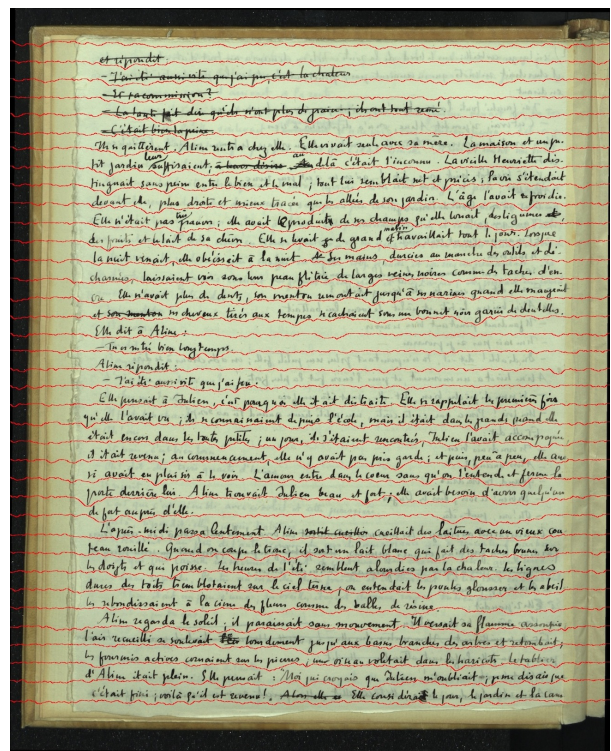 et répondit
- J'ai été aussi vite que j'ai pu, c'est la chaleur
- Et ta commission ?
- La tante fait dire qu'ils n'ont plus de graine, ils ont tout semé.
- C'était bien la peine
Ils se quittèrent. Aline rentra chez elle. Elle vivait seule avec sa mère. La maison et un pe-
tit jardin leur suffisaient, au delà c'était l'inconnu. La vieille Henriette dis-
tinguait sans peine entre le bien et le mal ; tout lui semblait net et précis ; la vie s'étendait
devant elle, plus droite et mieux tracée que les allées de son jardin. L'âge l'avait refroidie.
Elle n'était pas très pauvre ; elle avait le produit de ses champs qu'elle louait, des légumes,
des fruits et le lait de sa chèvre. Elle se levait de grand matin et travaillait tout le jour. Lorsque
la nuit venait, elle obéissait à la nuit. Ses mains, durcies au manche des outils et dé-
charnées, laissaient voir sous leur peau flétrie de larges veines noires comme des taches d'en-
cre. Elle n'avait plus de dents, son menton remontait jusqu'à ses narines quand elle mangeait
et ses cheveux tirés aux tempes se cachaient sous un bonnet noir garni de dentelles.
Elle dit à Aline :
- Tu es restée bien longtemps.
Aline répondit :
- J'ai été aussi vite que j'ai pu.
Elle pensait à Julien, c'est pourquoi elle était distraite. Elle se rappelait les premières fois
qu'elle l'avait vu ; ils se connaissaient depuis l'école, mais il était dans les grands quand elle
était encore dans les touts petits ; un jour, ils s'étaient rencontrés, Julien l'avait accompagnée
il était revenu ; au commencement, elle n'y avait pas pris garde ; et puis, peu à peu, elle au-
ssi avait eu plaisir à le voir. L'amour entre dans le coeur sans qu'on l'entende et ferme la
porte derrière lui. Aline trouvait Julien beau et fort ; elle avait besoin d'avoir quelqu'un
de fort auprès d'elle.
L'après-midi passa lentement. Aline cueillait des laitues avec un vieux cou-
teau rouillé. Quand on coupe le tronc, il sort un lait blanc qui fait des taches brunes sur
les doigts et qui poisse. Les heures de l'été semblent alourdies par la chaleur. Les lignes
dures des toits tremblotaient sur le ciel terne ; on entendait les poules glousser et les abeil
les rebondissaient à la cime des fleurs comme des balles de résine.
Aline regarda le soleil ; il paraissait sans mouvement. Il versait sa flamme assoupie
l'air recueilli se soulevait lourdement jusqu'aux basses branches des arbres et retombait ;
les fourmis actives couraient sur les pierres, un oiseau voletait dans les haricots. le tablier
d'Aline était plein. Elle pensait : Moi qui croyais que Julien m'oubliait, je me disais que
c'était fini ; voilà qu'il est revenu !, Alors elle Elle considérait le jour, le jardin et la cam